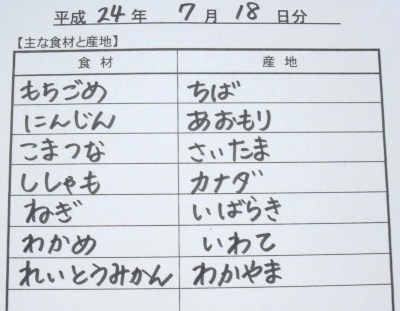 平成 24 年 7 月 18 日分
【主な食材と産地】
食材 産地
もちごめ ちば
にんじん あおもり
こまつな さいたま
ししゃも カナダ
ねぎ いばらき
わかめ いわて
れいとうみかん わかやま